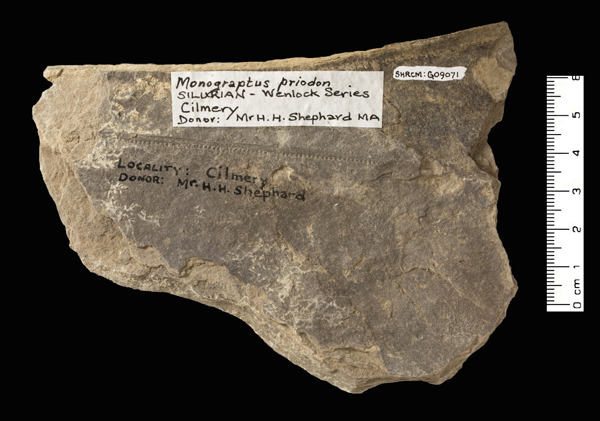 Monograptus priodon
SILURIAN - Wenlock Series
Cilmery
Donor: Mr H. H. Shephard MA
SHRCM: G09071
LOCALITY: Cilmery
DONOR: Mr. H. H. Shephard
6
5
4
3
2
1
0 cm